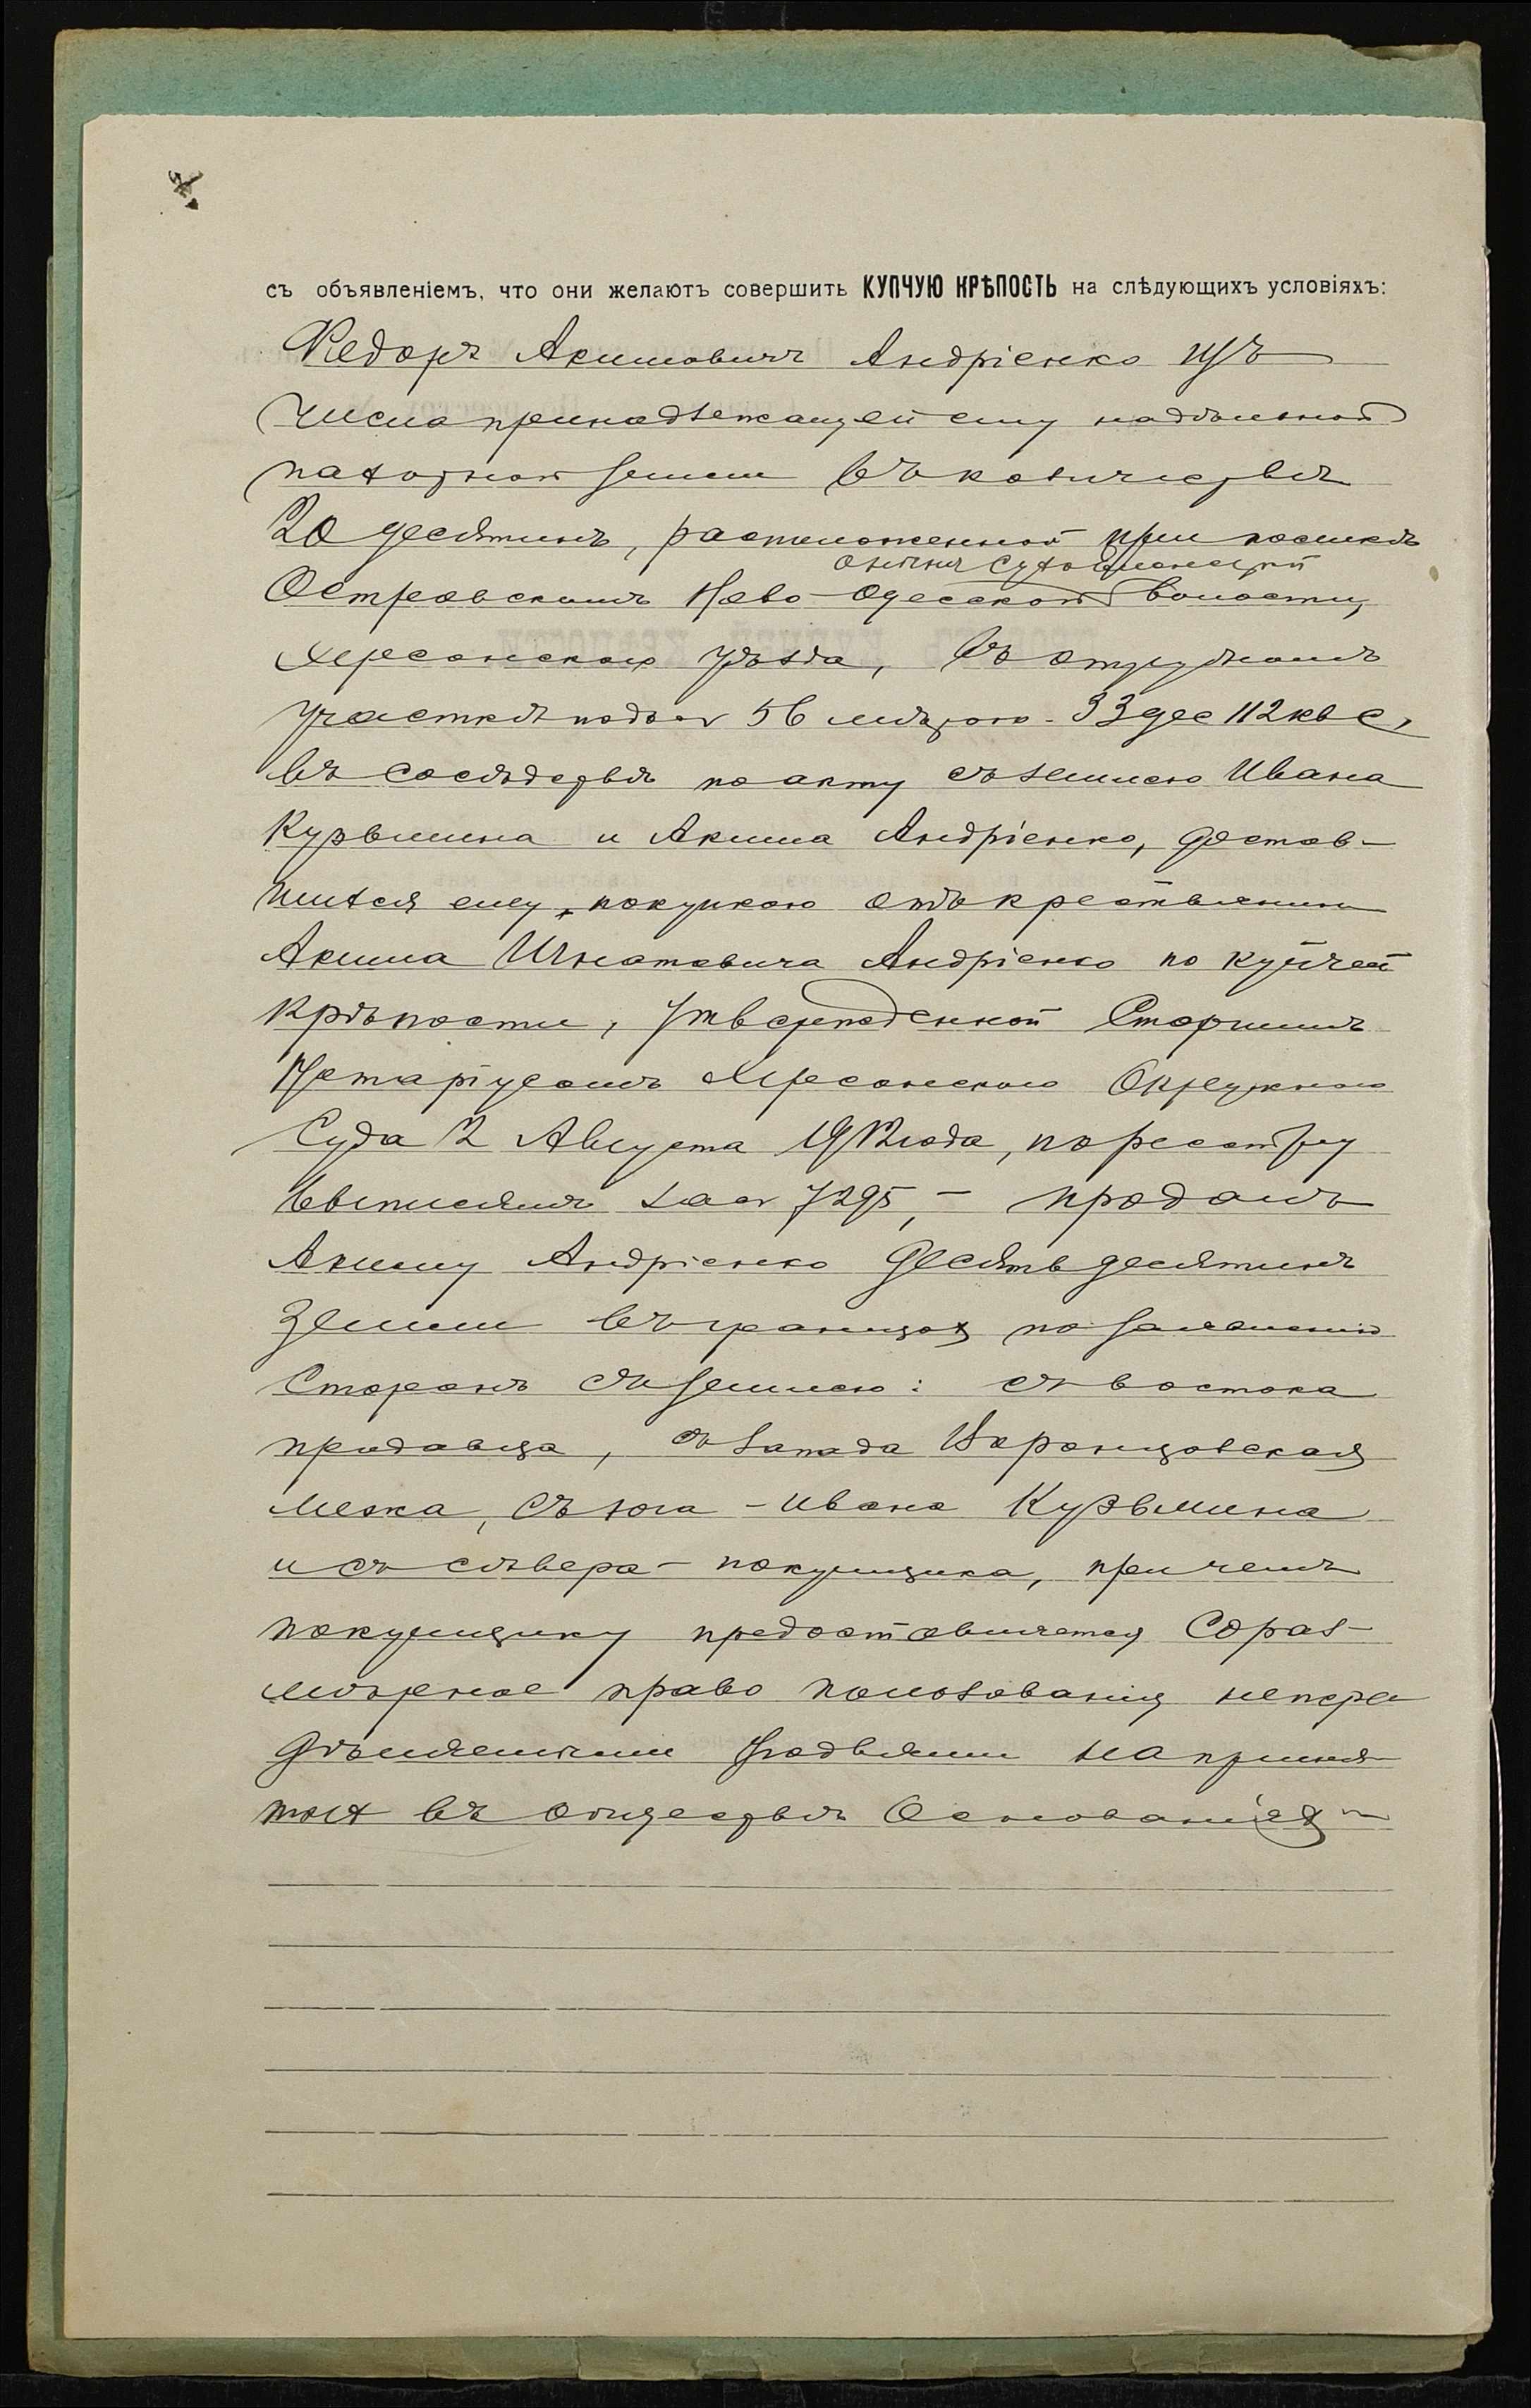 съ объявленіемъ, что они желаютъ совершить КУПЧУЮ КРѢПОСТЬ на слѣдующихъ условіяхъ:
Федоръ Акимовичъ Андріенко изъ
числа принадлежащей ему надѣльной
пахотной земли въ количествѣ
20 десятинъ, расположенной при поселкѣ
Островскомъ Ново-Одесской волости,
Херсонскаго уѣзда, въ отрубномъ
участкѣ подъ № 56 мѣрою - 33 дес 112 кв с,
въ сосѣдствѣ по акту съ землею Ивана
Кузьмина и Акима Андріенко, достав-
шихся ему покупкою отъ крестьянина
Акима Игнатовича Андріенко по купчей
крѣпости, утвержденной Старшимъ
Нотаріусомъ Херсонскаго Окружнаго
Суда 2 Августа 1912 года, по реестру
выписямъ за № 7295, - продалъ
Акиму Андріенко десять десятинъ
земли въ границахъ по заявленію
сторонъ съ землею: съ востока
продавца, съ запада Воронцовская
межа, съ юга - Ивана Кузьмина
и съ сѣвера - покупщика, при чемъ
покупщику предоставляется сораз-
мѣрное право пользованія нераз
дѣляемыми угодьями на приня-
тыхъ въ обществѣ основаніяхъ -